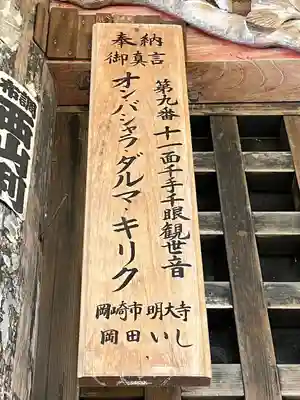 奉納
御真言
第九番 十一面千手千眼観世音
オンバシャラダルマ・キリク
岡崎市明大寺
岡田いし